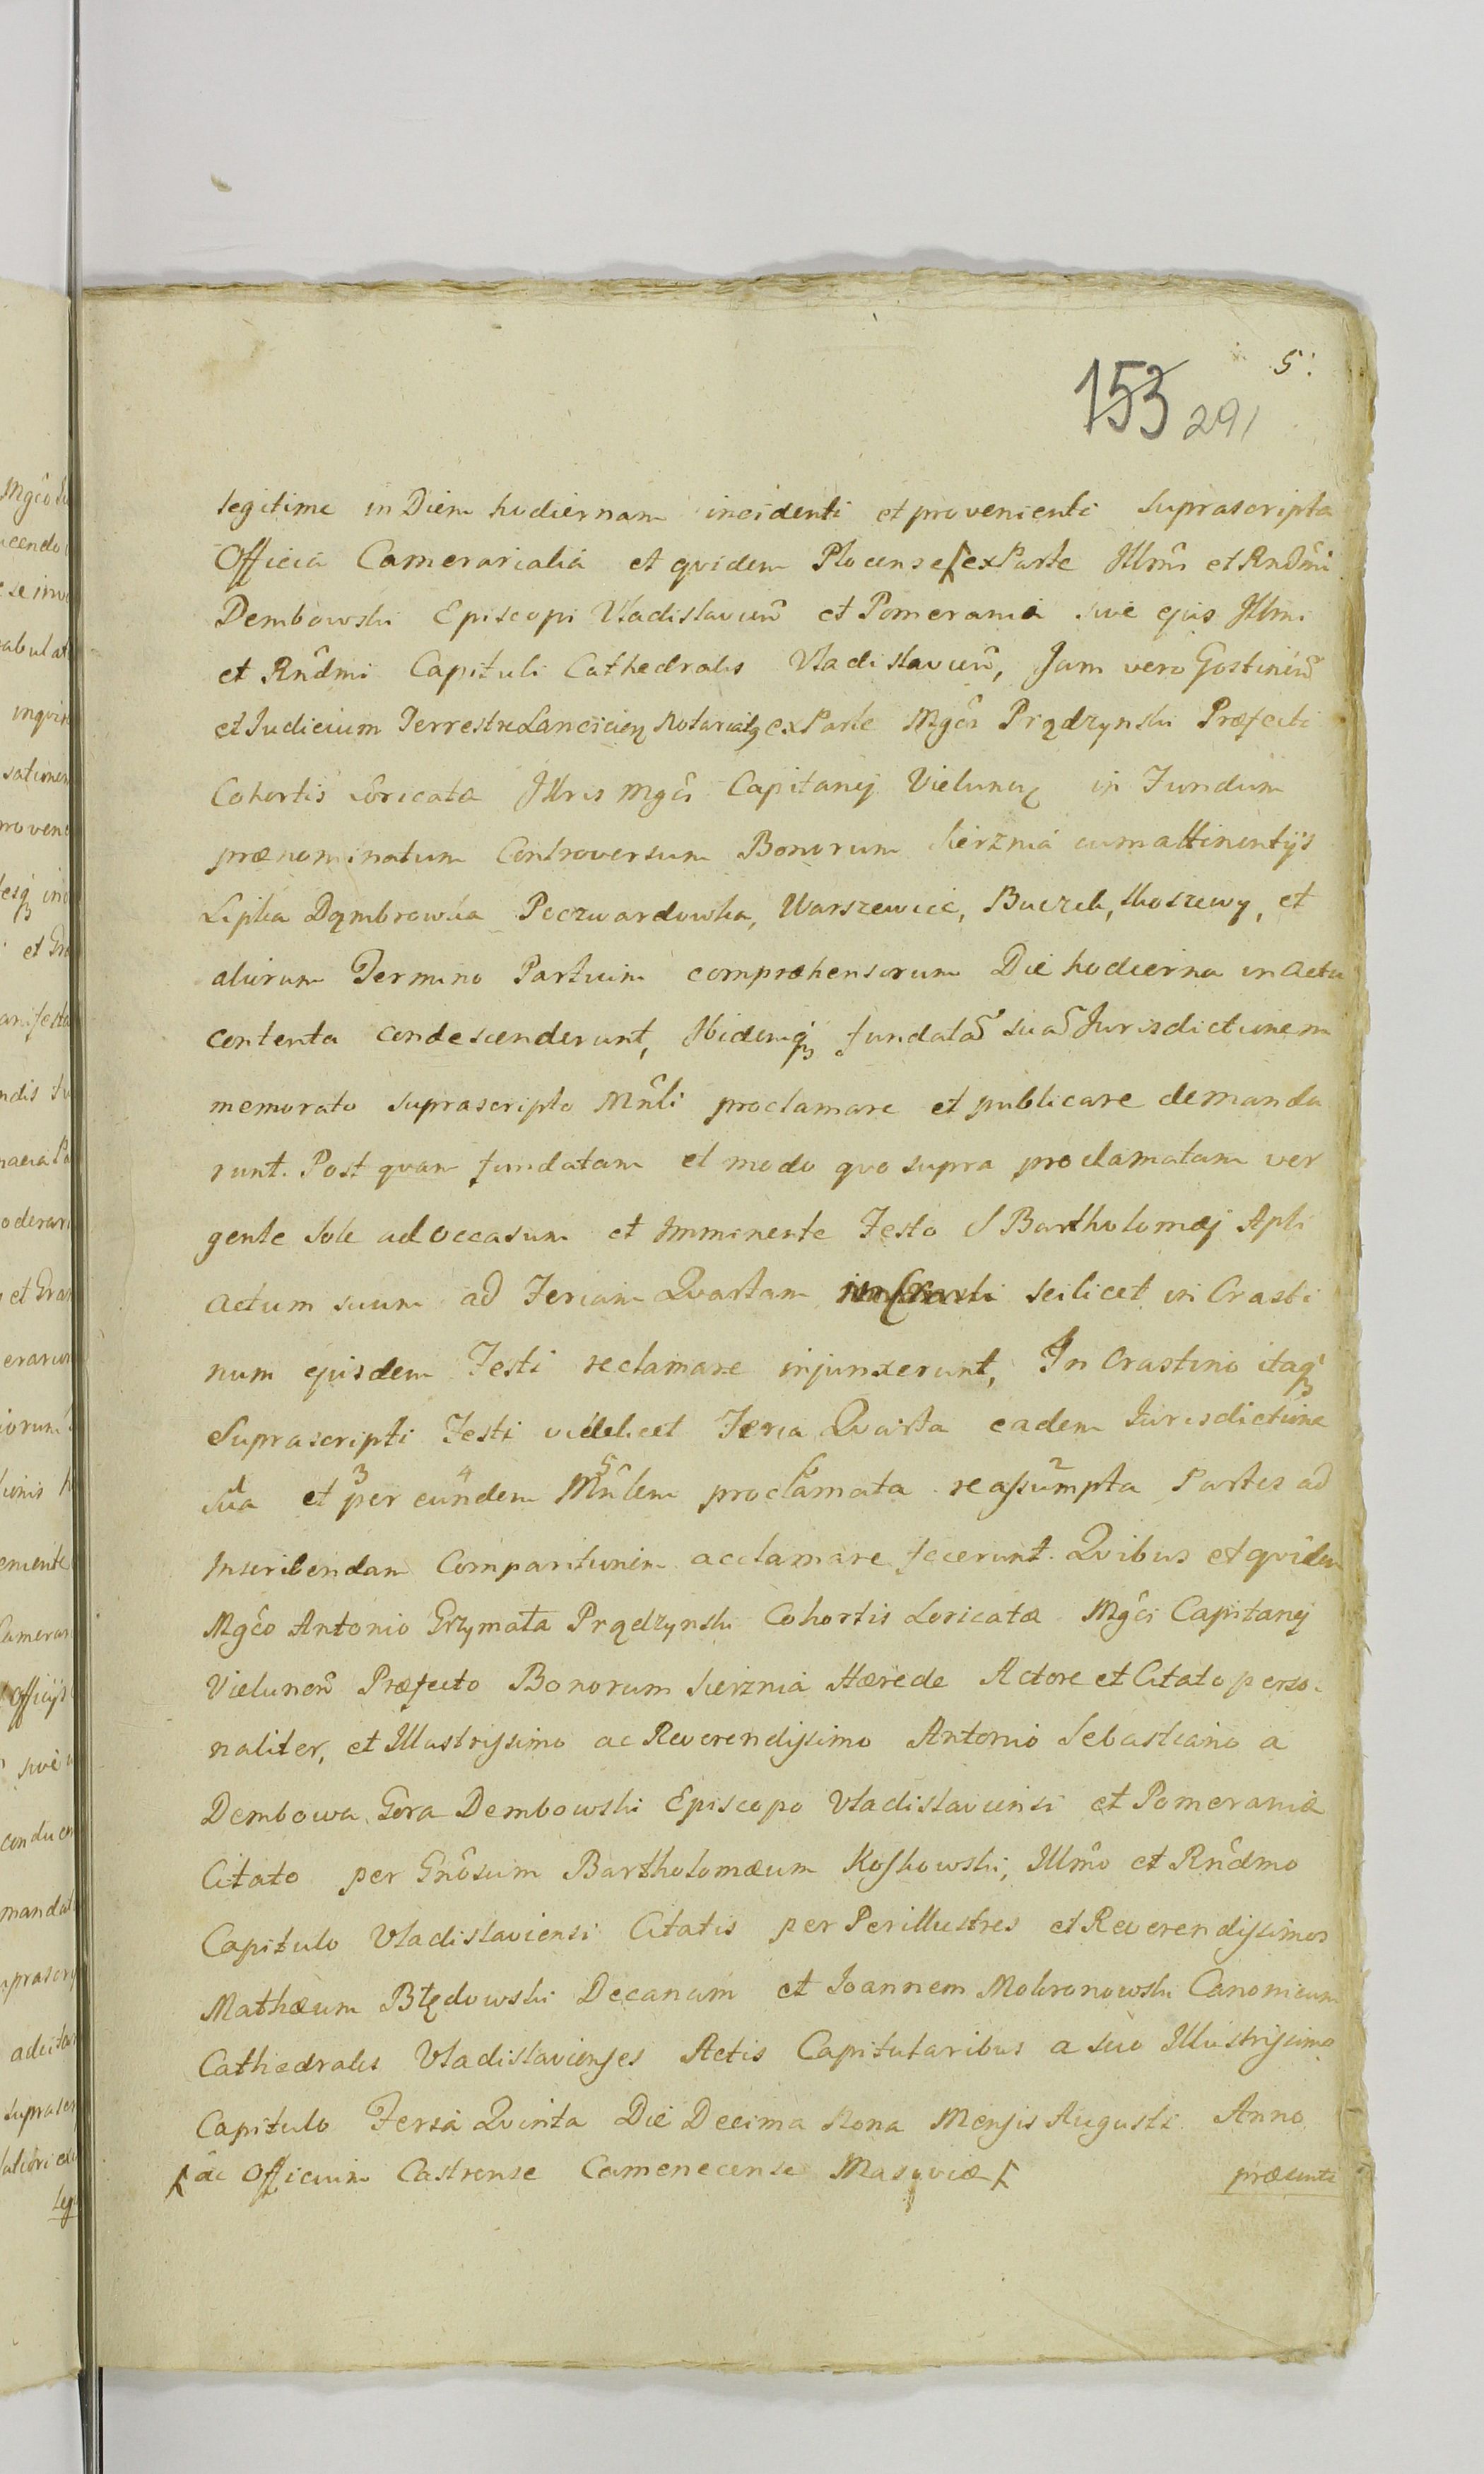 5.
153 291
legitime in Diem hodiernam incidenti et provenienti suprascripta
Officia Camerarialia et qvidem Plocense ⌈ exParte Illmi et Rndmi
Dembowski Episcopi Vladislavien̄ et Pomerania sive ejus Illmi
et Rndmi Capituli Cathedralis Vladislavien̄, Jam vero Gostinen̄
et Iudicium Terrestre Lancicien exParte Mgci Prądzynski Præfecti
Cohortis loricatæ Illris Mgci Capitanej Vielunen in Fundum
prænominatum Controversum Bonorum Sierznia cum attinentijs
Lipka Dąmbrowka Poczwardowka, Warszewice, Buczek, Koszewy, et
aliorum Termino Partium compræhensorum Die hodierna in actu
contenta condescenderunt, Ibidemq fundatā suā Jurisdictionem
memorato suprascripto Mnli proclamare et publicare demanda
runt. Post qvam fundatam et modo quo supra proclamatam ver
gente Sole ad occasum et Imminente Festo S Bartholomæj Apli
actum suum ad Feriam Qvartam scilicet in Crasti
num ejusdem Festi reclamare injunxerunt, In Crastino itaq
Suprascripti Festi videlicet Feria Qvarta eadem Jurisdictione
1 3 4 5 6 2
sua et per eundem Mnlem proclamata reassumpta Partes ad
Inscribendam Comparitionem acclamare fecerunt. Qvibus et qvidem
Mgco Antonio Grzymała Prądzynski Cohortis Loricatæ Mgci Capitanej
Vielunen̄ Præfecto Bonorum Sierznia Hærede Actore et Citato perso-
naliter, et Illustrissimo ac Reverendissimo Antonio Sebastiano a
Dembowa Gora Dembowski Episcopo Vladislaviensi et Pomeraniæ
Citato per Gnosum Bartholomæum Koskowski, Illmo et Rndmo
Capitulo Vladislaviensi Citatis per Perillustres et Reverendissimos
Mathæum Błędowski Decanum et Joannem Mokronowski Canonicum
Cathedrales Vladislavienses Actis Capitularibus a suo Illustrissimo
Capitulo Feria Qvinta Die Decima Nona Mensis Augusti Anno
⌈ ac Officium Castrense Camenecense Masoviæ ⌈ præsenti